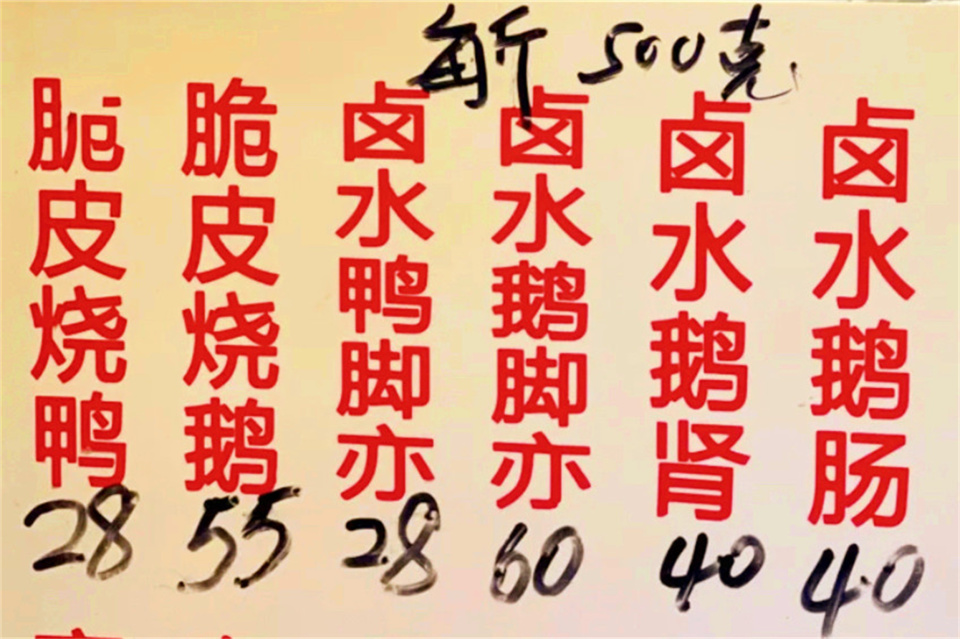 每斤500克
脆皮烧鸭
28
脆皮烧鹅
55
卤水鸭脚亦
28
卤水鹅脚亦
60
卤水鹅肾
40
卤水鹅肠
40